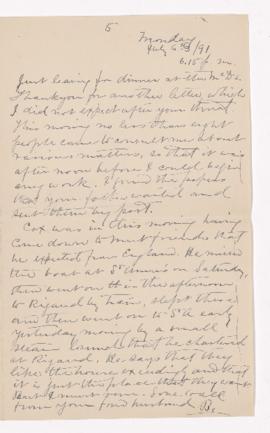 5
Monday
July 6th/91
6.15 p.m.
Just leaving for dinner at the McD's
Thank you for another letter which
I did not expect after your threat.
This morning no less than eight
people came to consult me about
various matters, so that it was
after noon before I could begin
any work. I the papers
that your father wanted and
sent them by post.
Cox was in this morning having
come down to meet friends that
he expected from England. He missed
the boat at St Anne's on Saturday,
then went on in the afternoon
to Rigaud by train, slept there
and then went on to St A early
yesterday morning by a small
steam launch that he chartered
at Rigaud. He says that they
like the house exceedingly and that
it is just the place that they want
But I must run. Love to all
from your fond husband